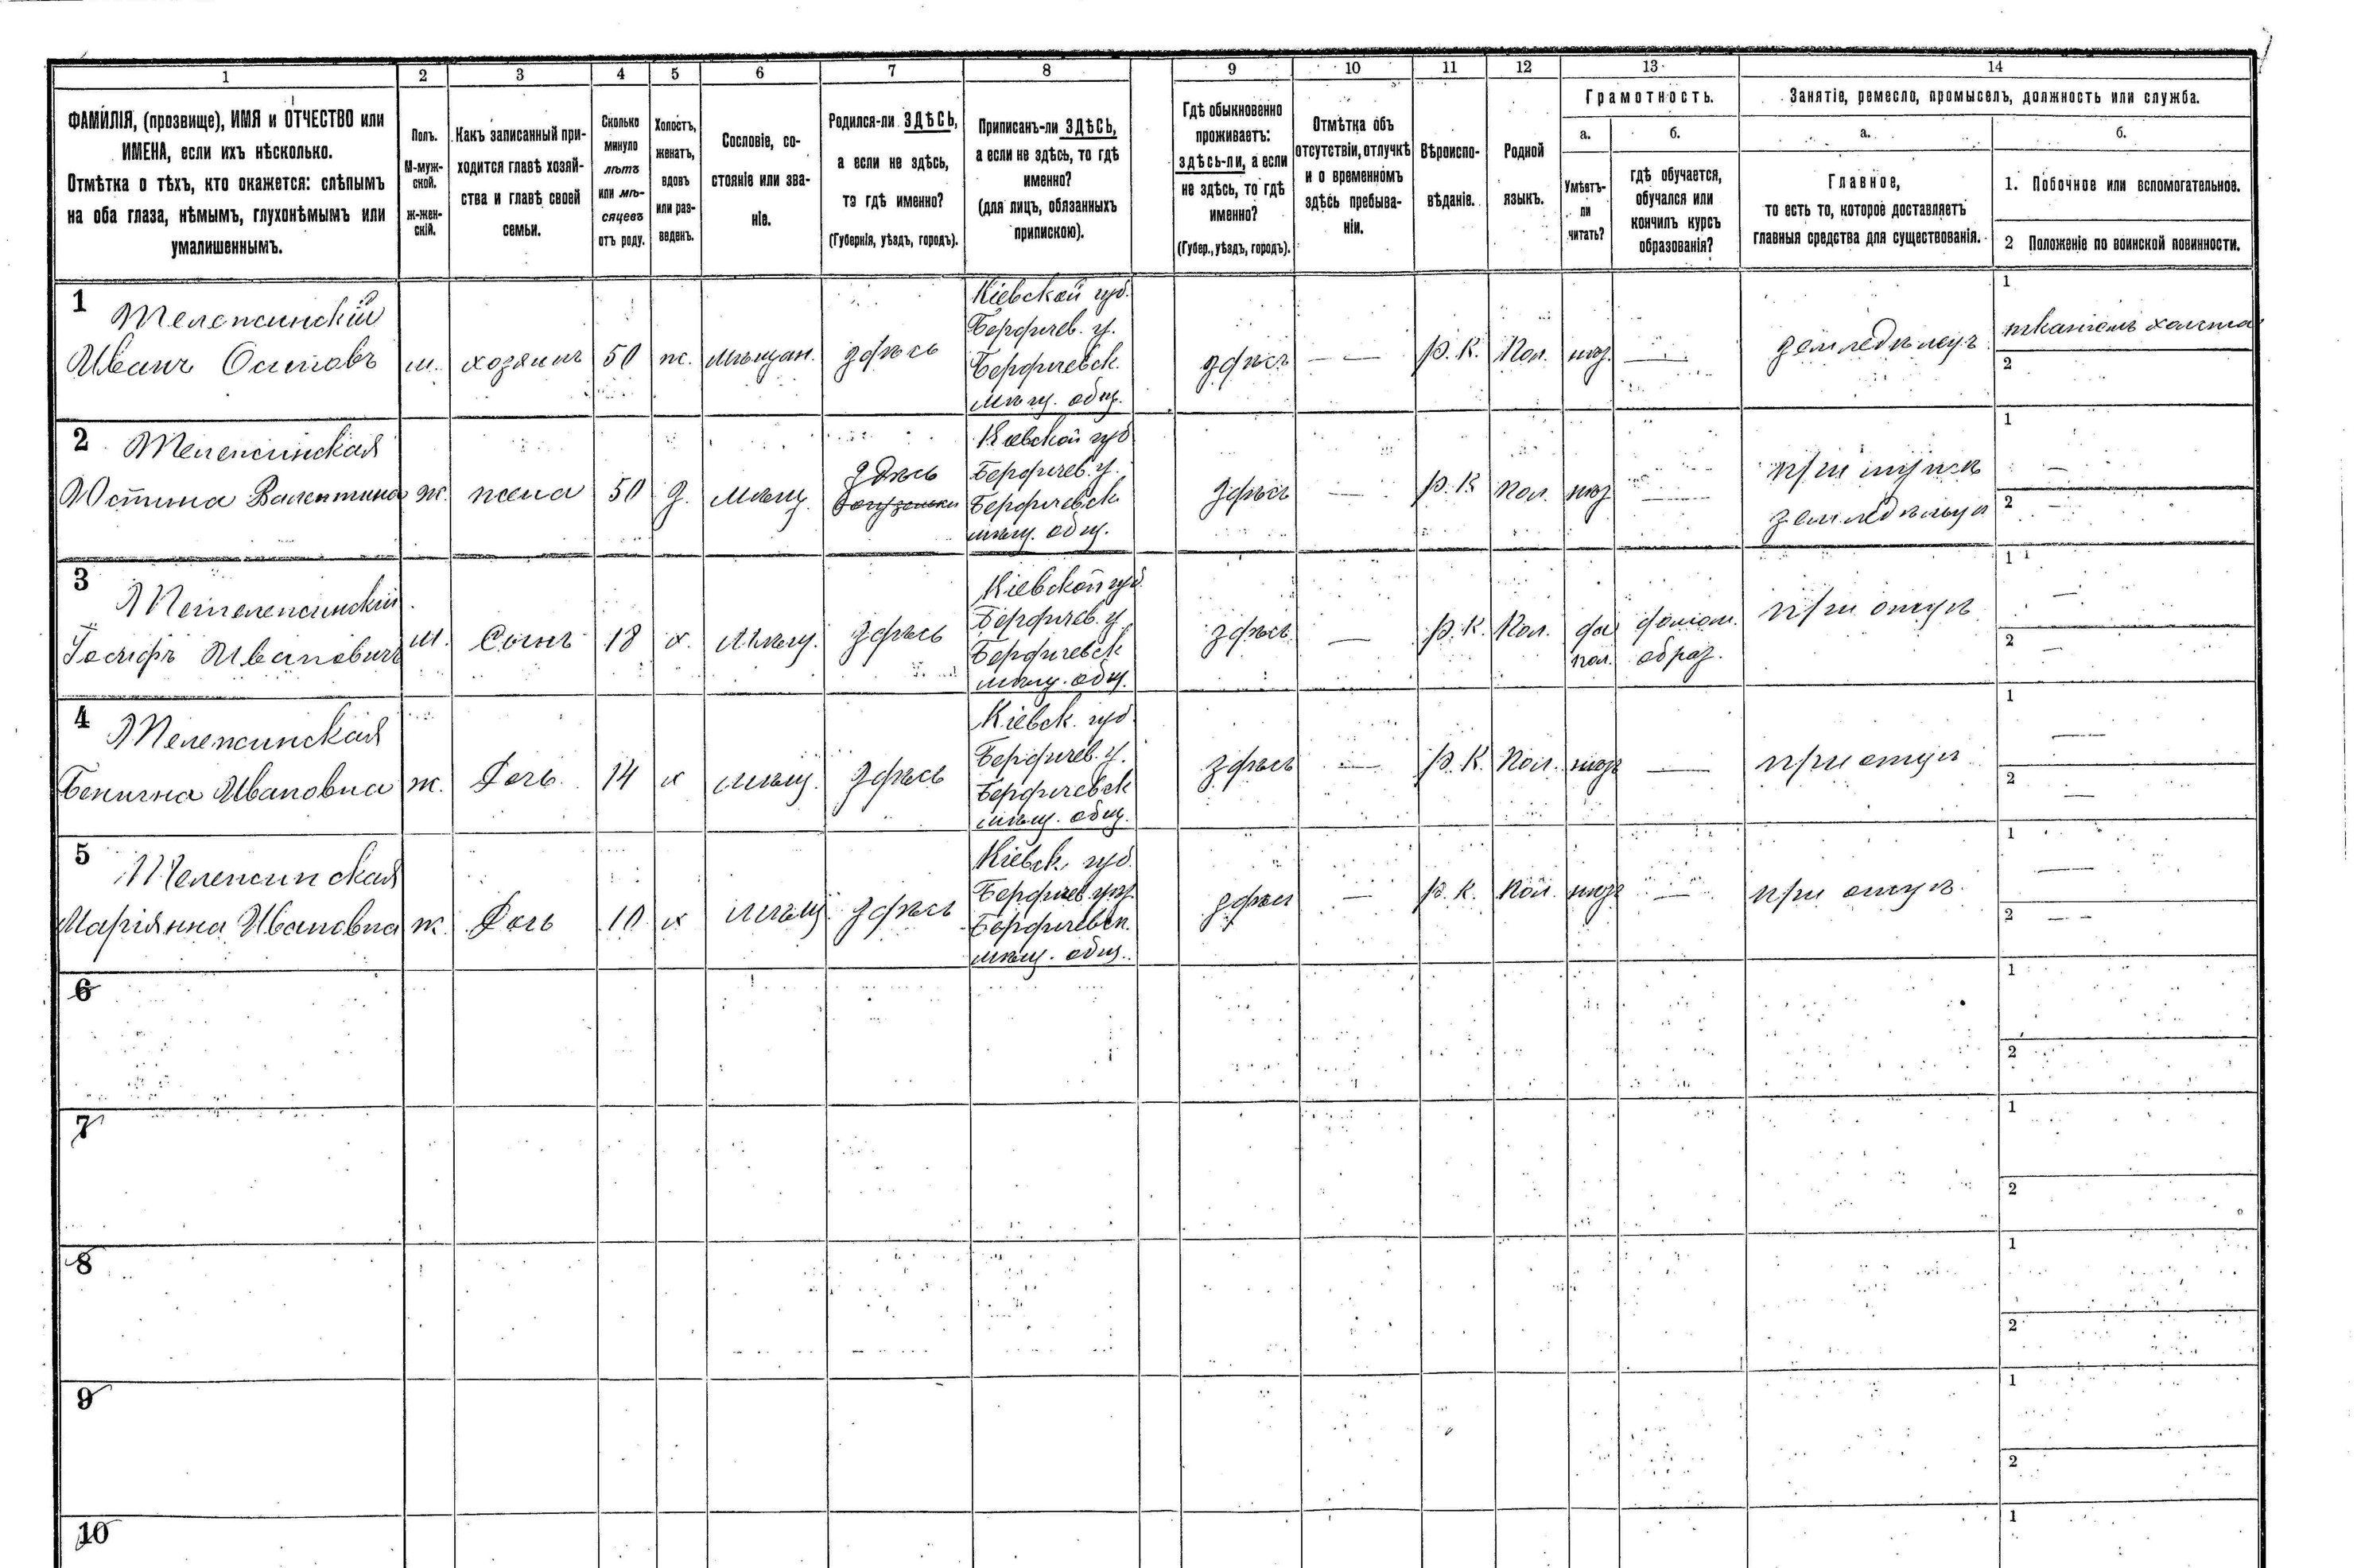 1 2 3 4 5 6 7 8 9 10 11 12 13 14
ФАМИЛІЯ, (прозвище), ИМЯ и ОТЧЕСТВО или
ИМЕНА, если ихъ нѣсколько.
Отмѣтка о тѣхъ, кто окажется: слѣпымъ
на оба глаза, нѣмымъ, глухонѣмымъ или
умалишеннымъ.
Полъ.
М-муж-
ской.
Ж-жен-
скій.
Какъ записанный при-
ходится главѣ хозяй-
ства и главѣ своей
семьи.
Сколько
минуло
лѣтъ
или мѣ-
сяцевъ
отъ роду.
Холостъ,
женатъ,
вдовъ
или раз-
веденъ.
Сословіе, со-
стояніе или зва-
ніе.
Родился-ли ЗДѢСЬ,
а если не здѣсь,
то гдѣ именно?
(Губернія, уѣздъ, городъ).
Приписанъ-ли ЗДѢСЬ,
а если не здѣсь, то гдѣ
именно?
(для лицъ, обязанныхъ
припискою).
Гдѣ обыкновенно
проживаетъ:
здѣсь-ли, а если
не здѣсь, то гдѣ
именно?
(Губер., уѣздъ, городъ).
Отмѣтка объ
отсутствіи, отлучкѣ
и о временномъ
здѣсь пребыва-
ніи.
Вѣроиспо-
вѣданіе.
Родной
языкъ.
Грамотность.
а.
Умѣетъ-
ли
читать?
б.
гдѣ обучается,
обучался или
кончилъ курсъ
образованія?
Занятіе, ремесло, промыселъ, должность или служба.
а.
Главное,
то есть то, которое доставляетъ
главныя средства для существованія.
б.
1. Побочное или вспомогательное.
2 Положеніе по воинской повинности.
1
Иванъ Осиповъ
м.
хозяинъ
50
ж.
мѣщан.
здѣсь
Кіевской губ.
Бердичев. у.
Бердичевск.
мѣщ. общ.
здѣсь
— —
р. К.
Пол.
—
земледѣлецъ
1
тканіемъ холста
2
2
Валентинова
ж.
жена
50
з.
мѣщ.
здѣсь
Кіевской губ
Бердичев. у.
Бердичевск
мѣщ. общ.
здѣсь
—
р. К
пол.
—
при мужѣ
земледѣльца
1
—
2
—
3
Іосифъ Ивановичъ
м.
Сынъ
18
х.
мѣщ.
здѣсь
Кіевской губ.
Бердичев. у.
Бердичевск
мѣщ. общ.
здѣсь
—
р. К.
Пол.
да
пол.
домаш.
образ.
при отцѣ
1
—
2
—
4
Ивановна
ж.
Дочь
14
х
мѣщ.
здѣсь
Кіевск. губ.
Бердичев. у.
Бердичевск
мѣщ. общ.
здѣсь
—
р. К.
Пол.
—
при отцѣ
1
—
2
—
5
Маріянна Ивановна
ж.
Дочь
10
х
мѣщ.
здѣсь
Кіевск. губ.
Бердичев. уѣз.
Бердичевск.
мѣщ. общ.
здѣсь
—
р. К.
Пол.
—
при отцѣ
1
—
2
— —
6
1
2
7
1
2
8
1
2
9
1
2
10
1